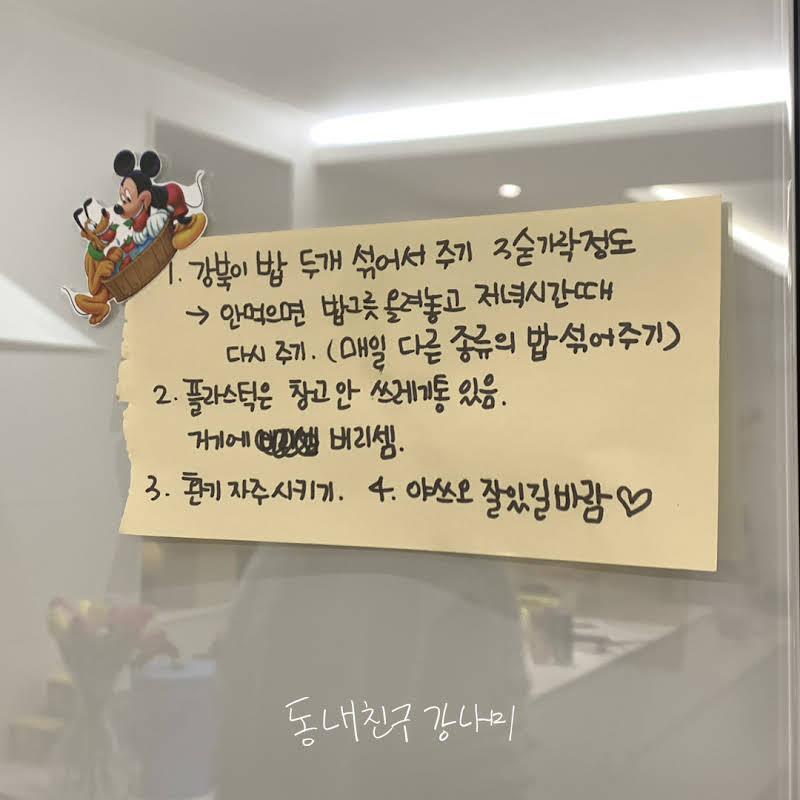 1. 강북이 밥 두개 섞어서 주기 2숟가락정도
→ 안먹으면 밥그릇 올려놓고 저녁시간때
다시 주기. (매일 다른 종류의 밥 섞어주기)
2. 플라스틱은 창고 안 쓰레기통 있음.
거기에 버리셈.
3. 환기 자주 시키기. 4. 야쓰오 잘있길 바람♡
동내친구 강나미